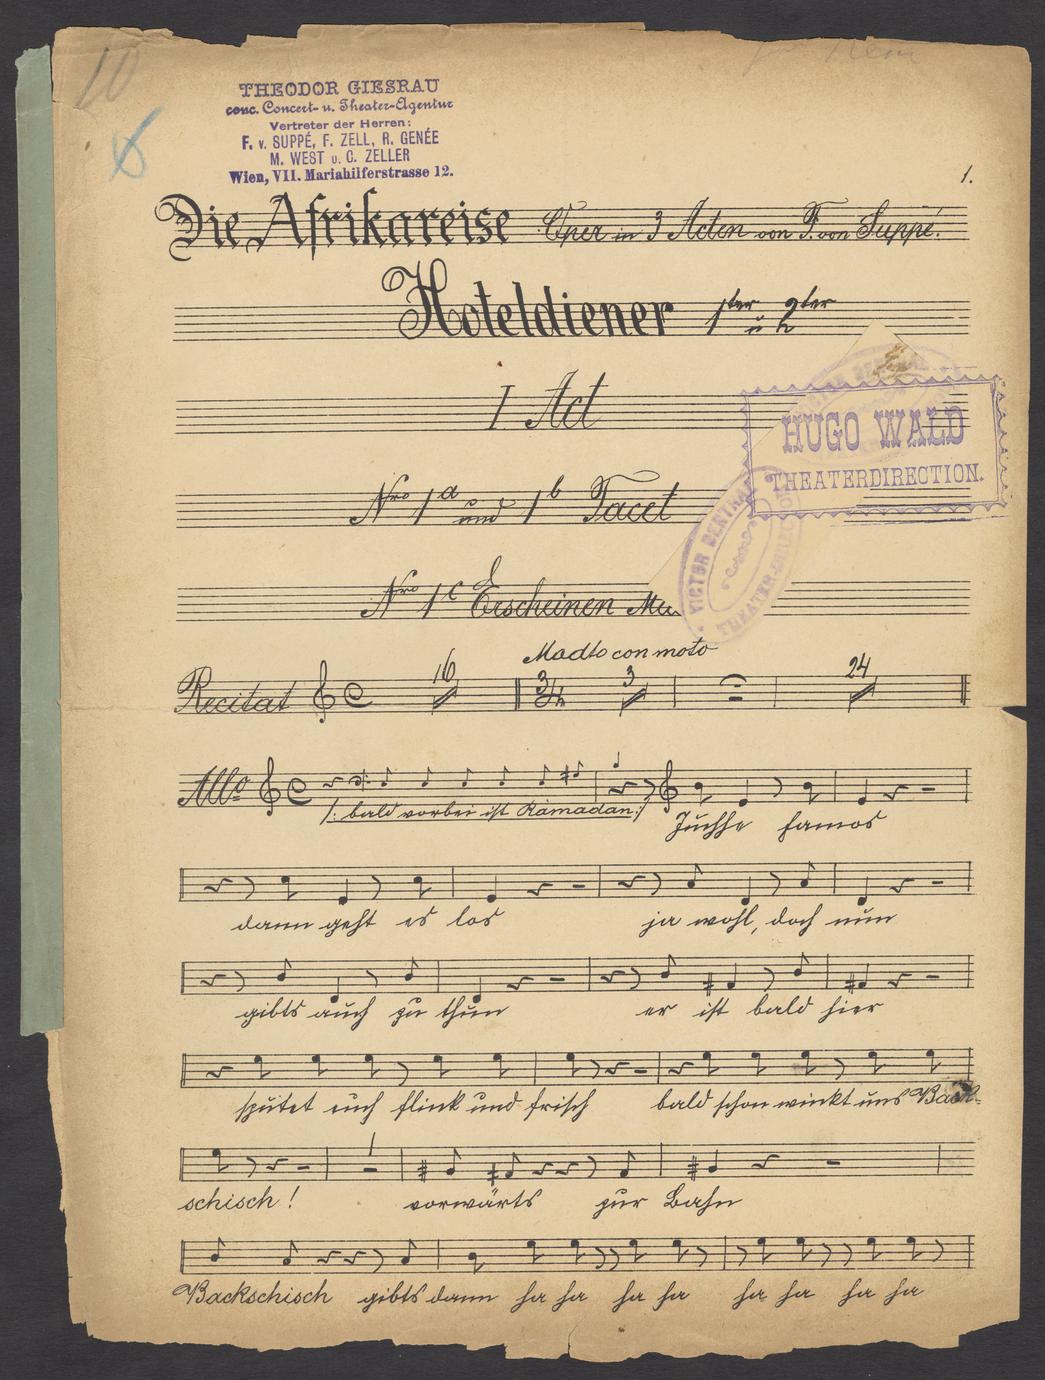 10
6
THEODOR GIESRAU
conc. Concert- u. Theater-Agentur
Vertreter der Herren:
F. v. SUPPÉ, F. ZELL, R. GENÉE
M. WEST u. C. ZELLER
Wien, VII. Mariahilferstrasse 12.
1.
Die Afrikareise Oper in 3 Acten von F. von Suppé.
Hoteldiener 1ter u 2ter
I Act
HUGO WALD
THEATERDIRECTION.
Nro 1a und 1b Tacet
VICTOR BERTHAL
THEATER-DIRECTOR
Nro 1c Erscheinen
Modto con moto
Recitat 16 3/4 3 24
Allo
/: bald vorbei ist Ramadan :/ Juchhe famos
dann geht es los ja wohl, doch nun
gibts auch zu thun er ist bald hier
sputet euch flink und frisch bald schon winkt uns Back-
schisch! vorwärts zur Bahn
Backschisch gibts dann ha ha ha ha ha ha ha ha